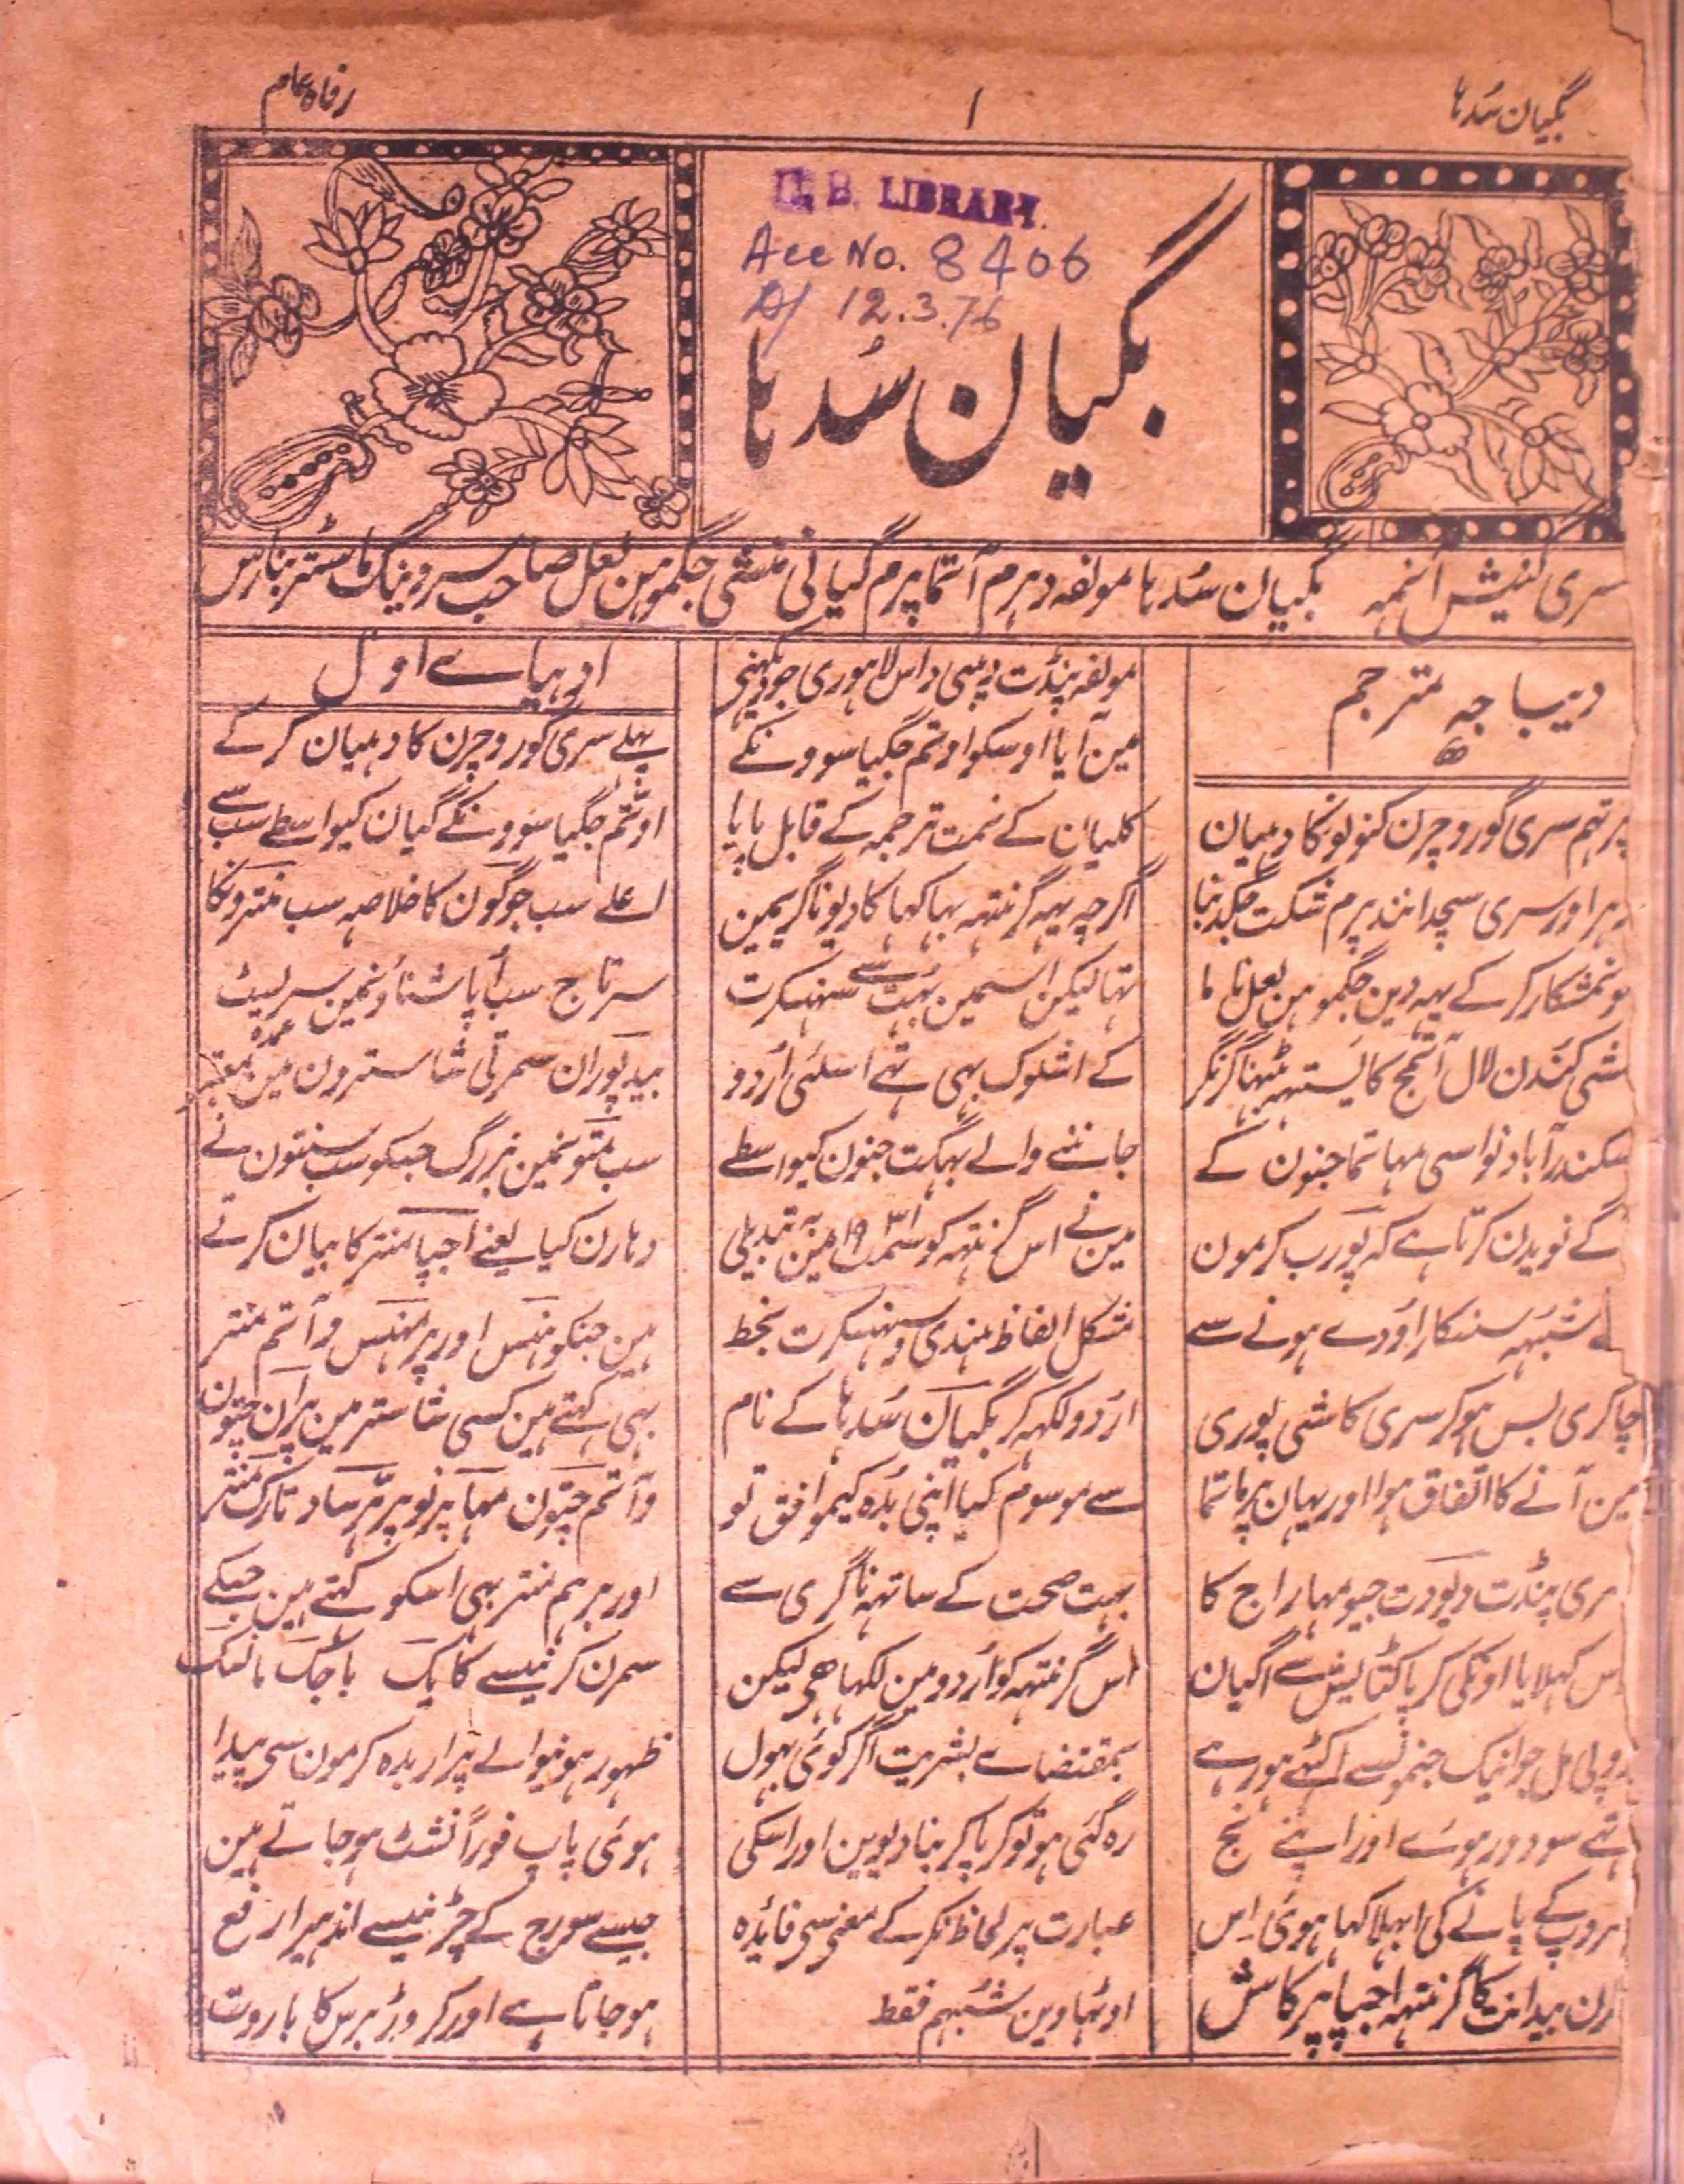 بگیان سُدہا
۱
رفاہ عام
U. B. LIBRARY.
Acc No. 8406
D/ 12.3.76
بگیان سُدہا
سری گنیش آنمہ بگیان سُدہا مولفہ دہرم آتما پرم گیانی منشی جگموہن لعل صاحب سروینگ ماسٹر بنارس
دیباچہ مترجم
پرتہم سری گورو چرن کنولونکا دہیان
دہر اور سری سچدانند پرم شکت جگدنبا
کو نمشکار کر کے یہہ دین جگموہن لعل نامی
منشی کندن لال آتمج کایستہہ بٹہناگر نگر
سکندرآباد نواسی مہاتما جنون کے
آگے نویدن کرتا ہے کہ پورب کرمون
کے شبہہ سنسکار اودے ہونے سے
چاکری بس ہو کر سری کاشی پوری
مین آنے کا اتفاق ہوا اور یہان پرماتما
سری پنڈت دیودت جیو مہاراج کا
داس کہلایا اونکی کرپا کٹالیش سے اگیان
روپی مل جو انیک جنمونسے اکٹھے ہورہے
تہے سو دور ہوے اور اپنے نج
سروپ کے پانے کی ابہلاکہا ہوئی اِس
کارن بیدانت کا گرنتہہ اجپا پرکاش
مولفہ پنڈت دیبی داس لاہوری جو دیکہنی
مین آیا اوسکو اوتم جگیاسوونکے
کلیان کے نمت ترجمہ کے قابل پایا
اگرچہ یہہ گرنتہہ بہاکہا کا دیوناگریمین
تہا لیکن اسمین بہت سے سنسکرت
کے اشلوک بہی تہے اسلئی اُردو
جاننے والے بہگت جنون کیواسطے
مین نے اس گرنتہہ کو سمت ۱۹۳۱ مین بہ تبدیلی
مشکل الفاظ ہندی و سنسکرت بخط
اردو لکہہ کر بگیان سُدہا کے نام
سے موسوم کیا اپنی بُدہ کیموافق تو
بہت صحت کے ساتہہ ناگری سے
اس گرنتہہ کو اُردو مین لکہا ھی لیکن
بمقتضاے بشریت اگر کوئی بہول
رہ گئی ہو تو کرپا کر بنا دیوین اور اسکی
عبارت پر لحاظ نکر کے معنی سی فائدہ
اوٹہاوین شبہم فقط
ادہیاے اول
پہلے سری گورو چرن کا دہیان کر کے
اوتم جگیاسوونکے گیان کیواسطے سب سے
اعلے سب جوگون کا خلاصہ سب منترونکا
سرتاج سب اُپاشناؤنمین سریسٹ
بید پوران سمرتی شاسترون مین عمدہ معتبر
سب متونمین بزرگ جسکو سب سنتون نے
دہارن کیا یعنے اجپا منتر کا بیان کرتے
ہین جنکو ہنس اور پرمہنس و آتم منتر
بہی کہتے ہین کسی شاستر مین پران چتون
و آتم چتون مہا پرنو پر پرساد تارک منتر
اور برہم منتر بہی اسکو کہتے ہین جسکے
سمرن کرنیسے کایک باچک مانسک
ظہور ہونیوالے پرار بدہ کرمون سی پیدا
ہوئی پاپ فوراً نشٹ ہو جاتے ہین
جیسے سورج کے چڑنیسے اندہیرا رفع
ہو جاتا ہے اور کروڑ برس کا باروت